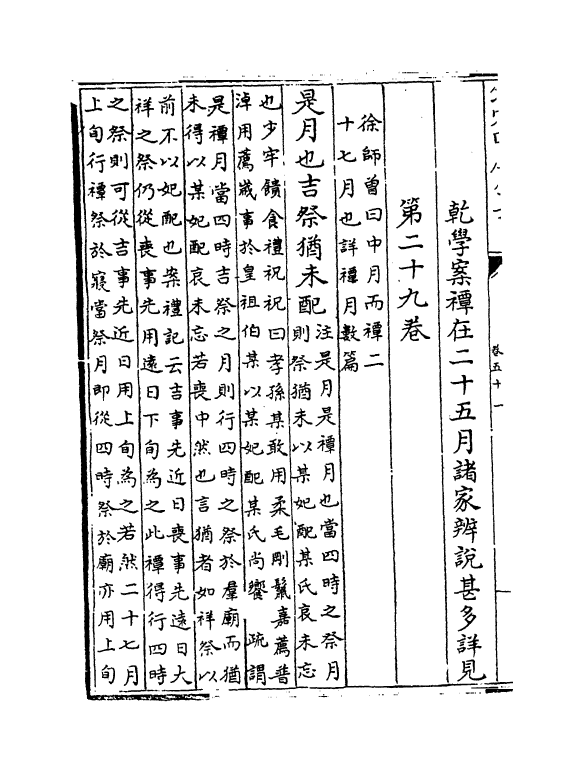 卷五十一
乾學案禫在二十五月諸家辨說甚多詳見
第二十九卷
徐師曾曰中月而禫二
十七月也詳禫月數篇
是月也吉祭猶未配
注是月是禫月也當四時之祭月
則祭猶未以某妃配某氏哀未忘
也少牢饋食禮祝祝曰孝孫某敢用柔毛剛鬣嘉薦普
淖用薦歲事於皇祖伯某以某妃配某氏尚饗 疏謂
是禫月當四時吉祭之月則行四時之祭於羣廟而猶
未得以某妃配哀未忘若喪中然也言猶者如祥祭以
前不以妃配也案禮記云吉事先近日喪事先遠日大
祥之祭仍從喪事先用遠日下旬為之此禫得行四時
之祭則可從吉事先近日用上旬為之若然二十七月
上旬行禫祭於寢當祭月即從四時祭於廟亦用上旬